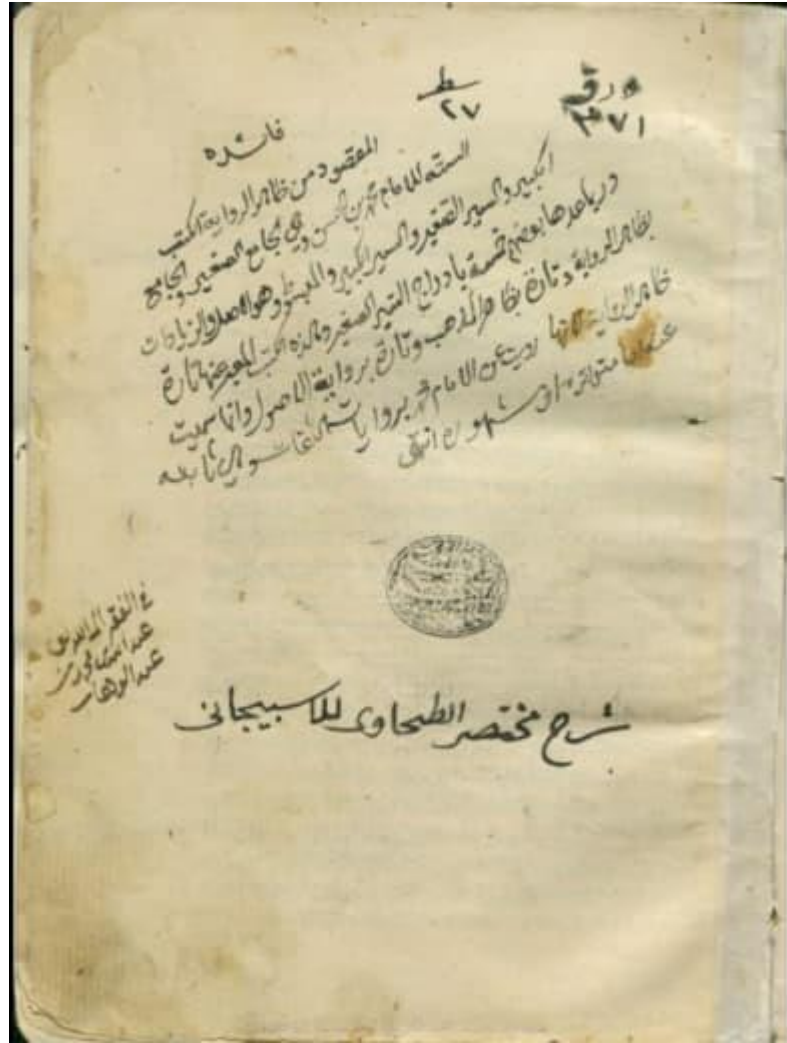 ورق
٣٧١
سطر
٢٧
فائده
المقصود من ظاهر الرواية الكتب
السته للامام محمد بن الحسن وهي الجامع الصغير والجامع
الكبير والسير الصغير والسير الكبير والمبسوط وهو الاصل والزيادات
وربما عدها بعضهم خمسة بادراج السير الصغير وهذه الكتب المعبر عنها تارة
بظاهر الرواية وتارة بظاهر المذهب وتارة برواية الاصول وانما سميت
ظاهر الرواية لانها رويت عن الامام محمد بروايات الثقات وهي ثابته
عنه اما متواتره او مشهوره انتهى
عبد الوهاب
شرح مختصر الطحاوى للاسبيجانى